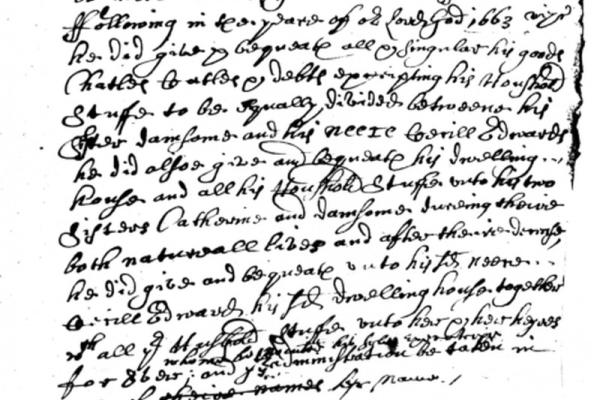 ffollowing in the yeare of or Lord God 1663 vizt
he did give & bequeath all & singular his goods
Chatles Cattles & debts excepting his Houshold
Stuffe to be equally divided betweene his
sister damsome and his neece Cecill Edwards
he did alsoe give and bequeath his dwelling
house and all his Houshold Stuffe unto his two
Sisters Catherine and damsome dureing theire
both naturall lives and after their decease
he did give and bequeath unto his sd neece
Cecill Edwards his sd dwelling house together
wth all ye Houshold Stuffe unto her & her heyres
for Ever; and administration be taken in
theire names by name